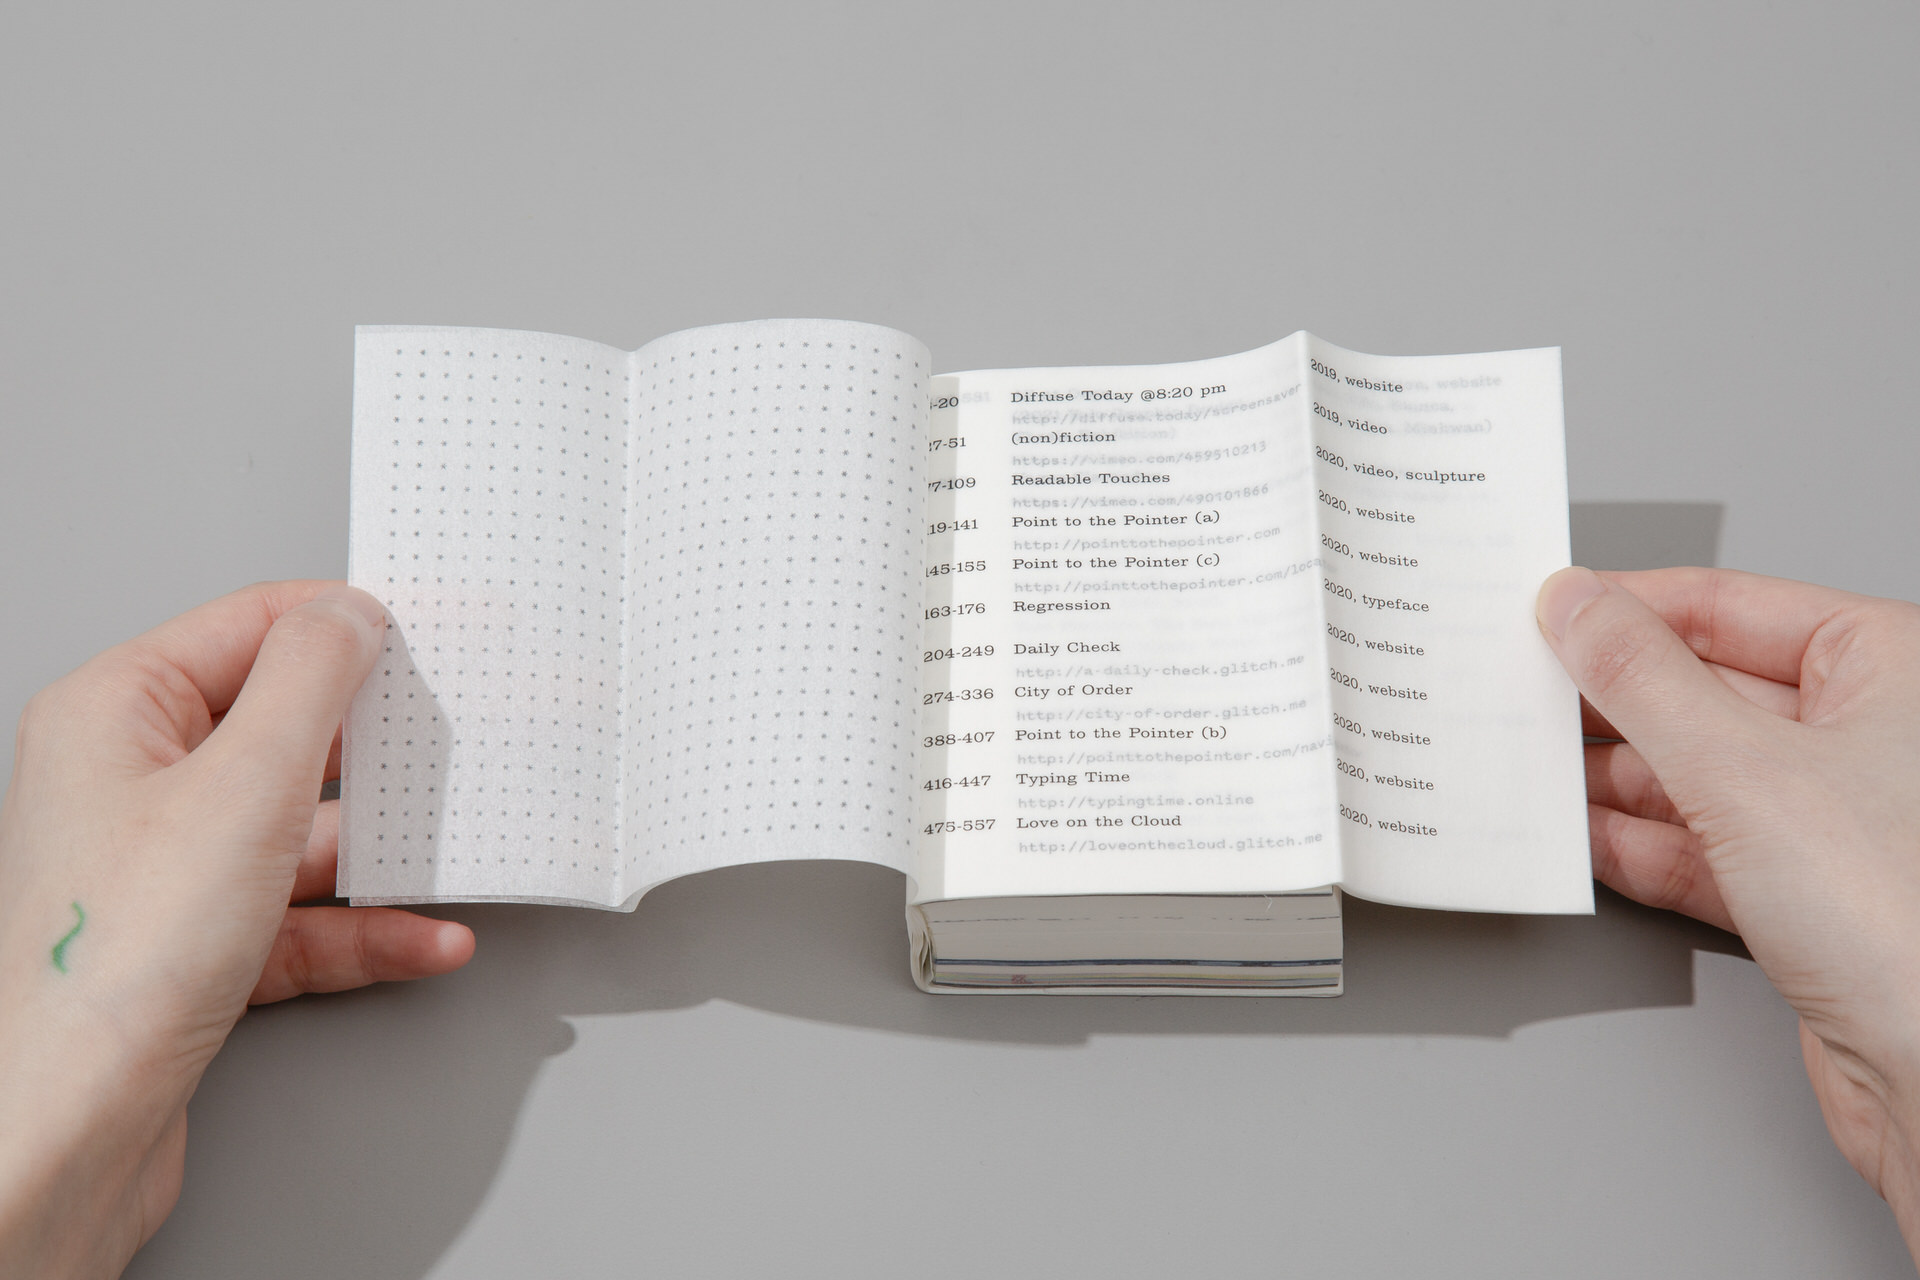 -20 Diffuse Today @8:20 pm 2019, website
http://diffuse.today/screensaver
7-51 (non)fiction 2019, video
https://vimeo.com/459510213
77-109 Readable Touches 2020, video, sculpture
https://vimeo.com/490101866
19-141 Point to the Pointer (a) 2020, website
http://pointtothepointer.com
145-155 Point to the Pointer (c) 2020, website
http://pointtothepointer.com/loca
163-176 Regression 2020, typeface
204-249 Daily Check 2020, website
http://a-daily-check.glitch.me
274-336 City of Order 2020, website
http://city-of-order.glitch.me
388-407 Point to the Pointer (b) 2020, website
http://pointtothepointer.com/navi
416-447 Typing Time 2020, website
http://typingtime.online
475-557 Love on the Cloud 2020, website
http://loveonthecloud.glitch.me